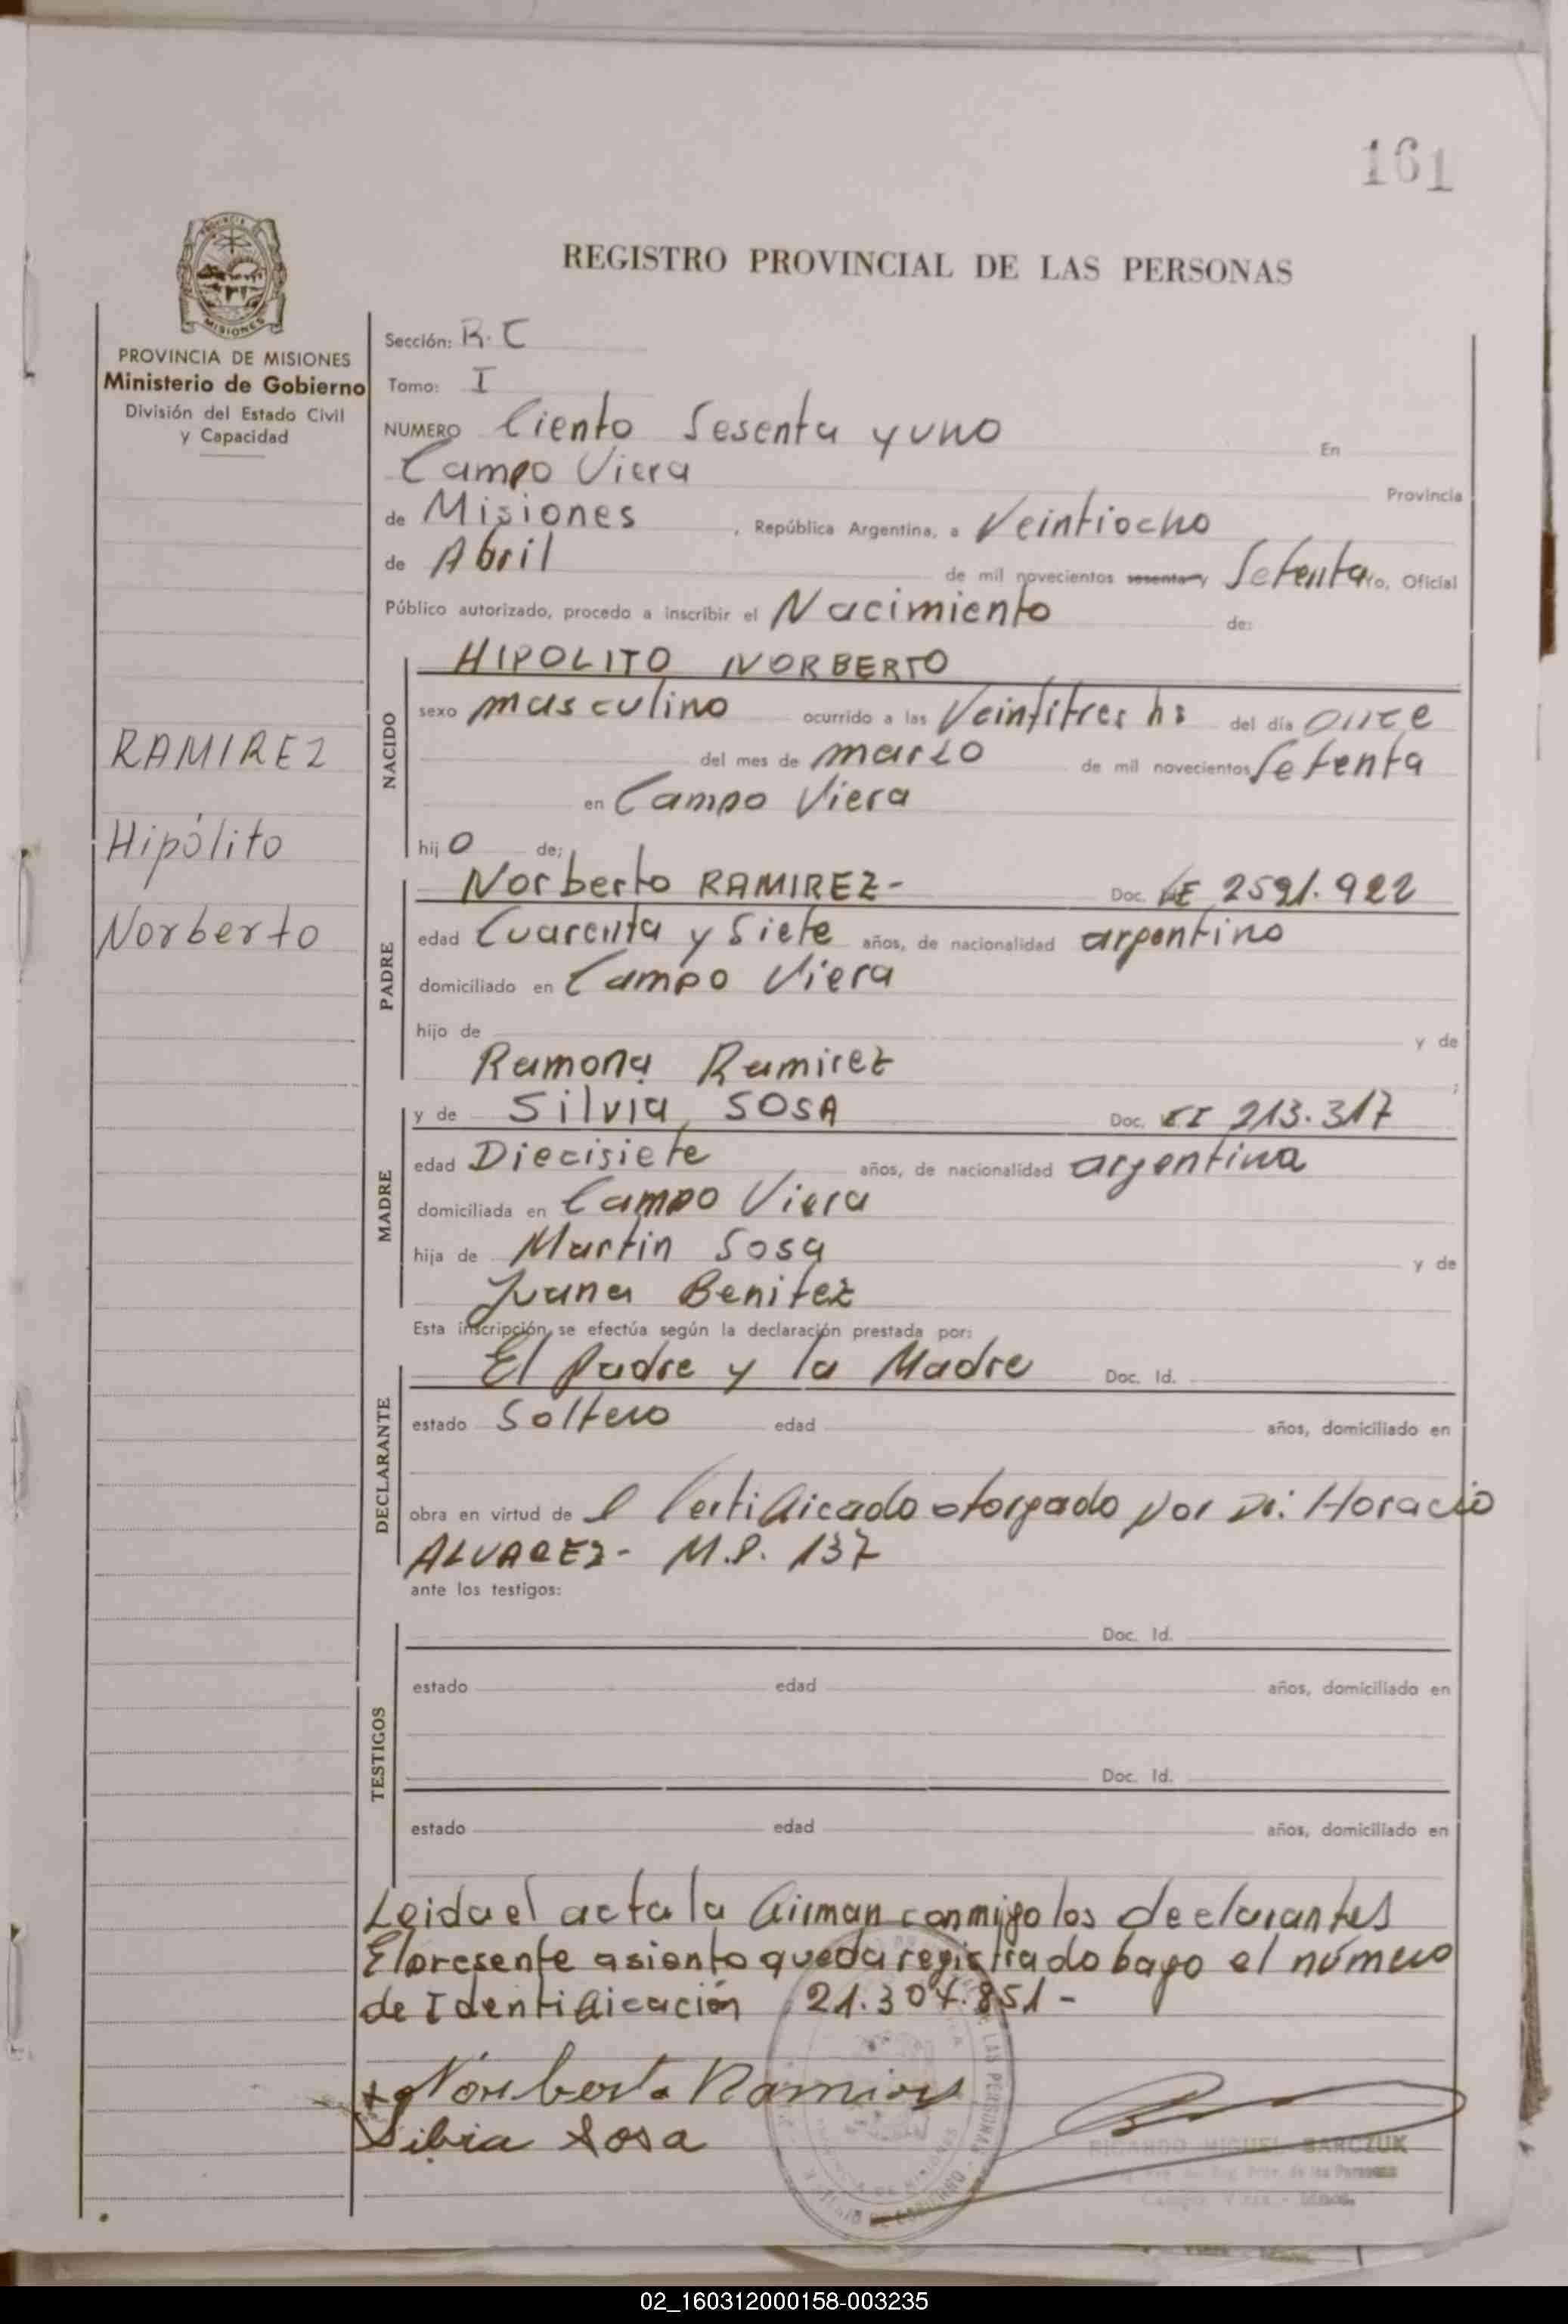 161
REGISTRO PROVINCIAL DE LAS PERSONAS
MISIONES
PROVINCIA DE MISIONES
Ministerio de Gobierno
División del Estado Civil
y Capacidad
RAMIREZ
Hipólito
Norberto
Sección: R.C
Tomo: I
NUMERO Ciento Sesenta y uno En
Campo Viera Provincia
de Misiones, República Argentina, a Veintiocho
de Abril de mil novecientos sesenta y Setenta Yo, Oficial
Público autorizado, procedo a inscribir el Nacimiento de:
NACIDO
HIPOLITO NORBERTO
sexo masculino ocurrido a las Veintitres hs del día once
del mes de marzo de mil novecientos Setenta
en Campo Viera
hijo de;
PADRE
Norberto RAMIREZ- Doc. LE 2591.922
edad Cuarenta y Siete años, de nacionalidad argentino
domiciliado en Campo Viera
hijo de y de
Ramona Ramirez ;
MADRE
y de Silvia SOSA Doc. CI 213.317
edad Diecisiete años, de nacionalidad argentina
domiciliada en Campo Viera
hija de Martin Sosa y de
Juana Benitez
Esta inscripción se efectúa según la declaración prestada por:
DECLARANTE
El Padre y la Madre Doc. Id.
estado Soltero edad años, domiciliado en
obra en virtud de l Certificado otorgado por Dr. Horacio
ALVAREZ- M.P. 137
ante los testigos:
TESTIGOS
Doc. Id.
estado edad años, domiciliado en
Doc. Id.
estado edad años, domiciliado en
Leida el acta la firman conmigo los declarantes
El presente asiento queda registrado bajo el número
de Identificación 21.304.851-
Norberto Ramires
Silvia Sosa
RICARDO MIGUEL BARCZUK
02_160312000158-003235